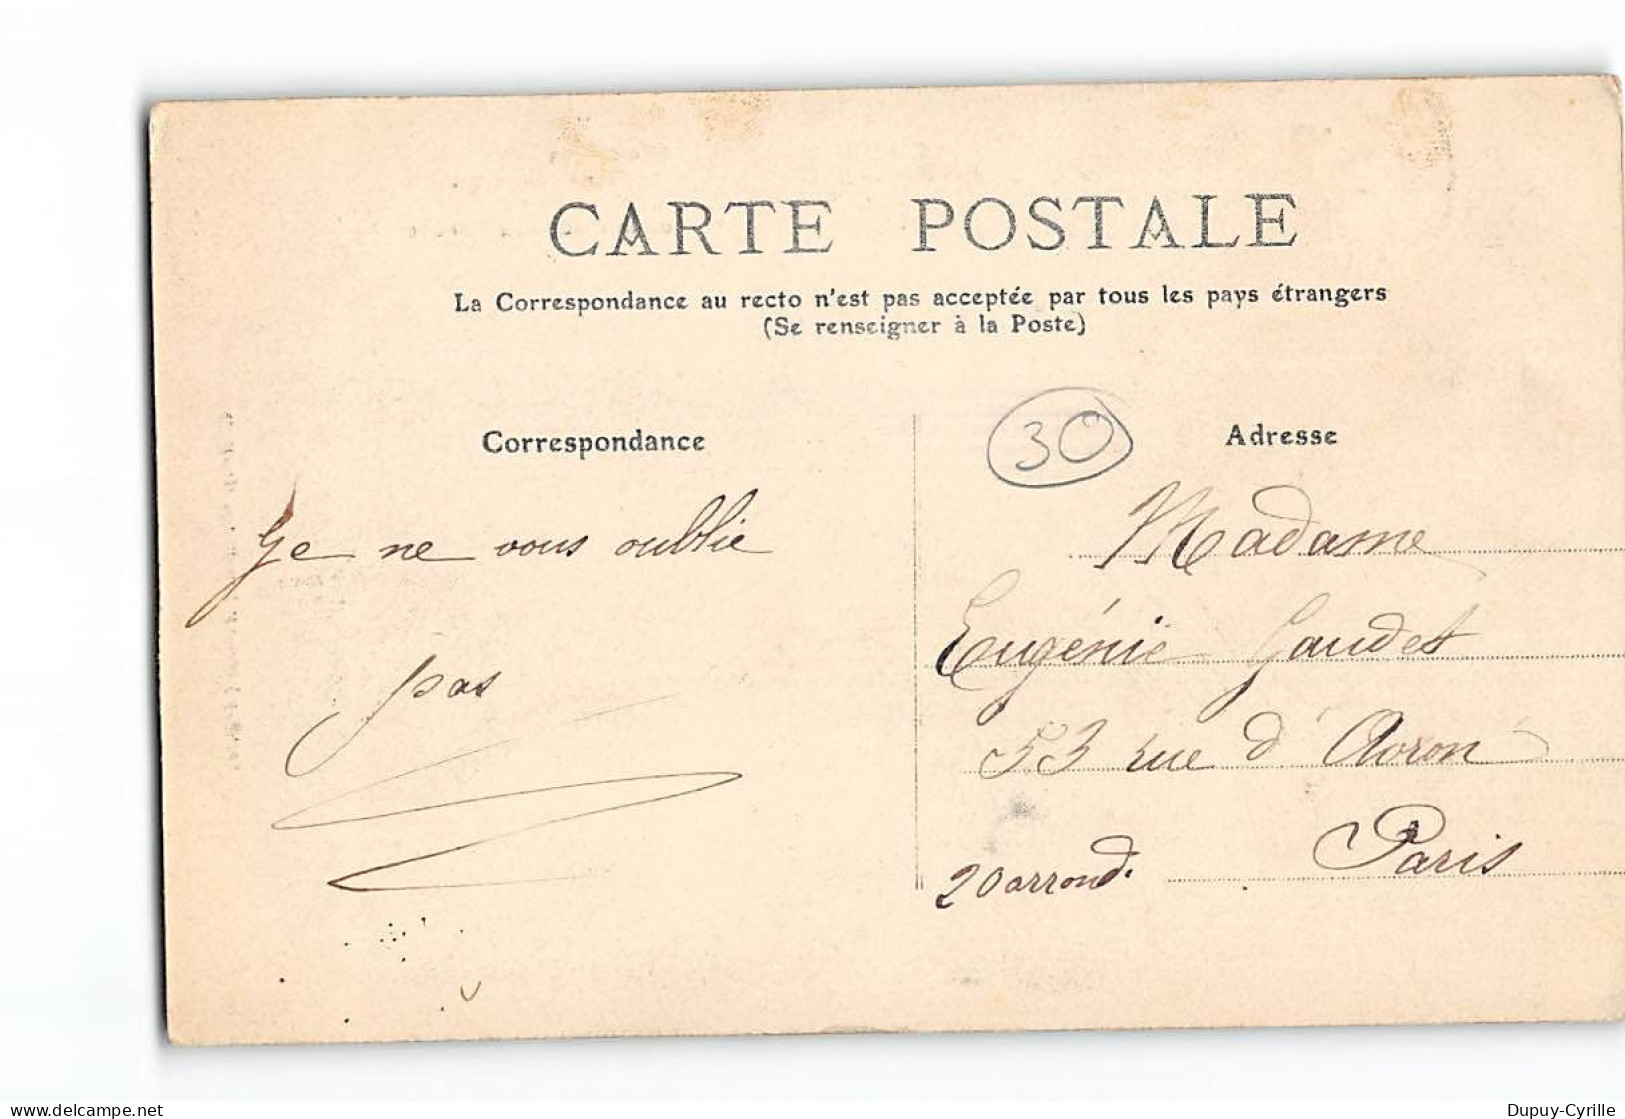 CARTE POSTALE
La Correspondance au recto n'est pas acceptée par tous les pays étrangers
(Se renseigner à la Poste)
Correspondance
Je ne vous oublie
pas
30
Adresse
Madame
Eugénie Gaudet
53 rue d'Avron
Paris
20 arrond.
Dupuy-Cyrille